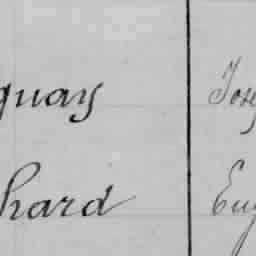 quay Jose
hard Eug